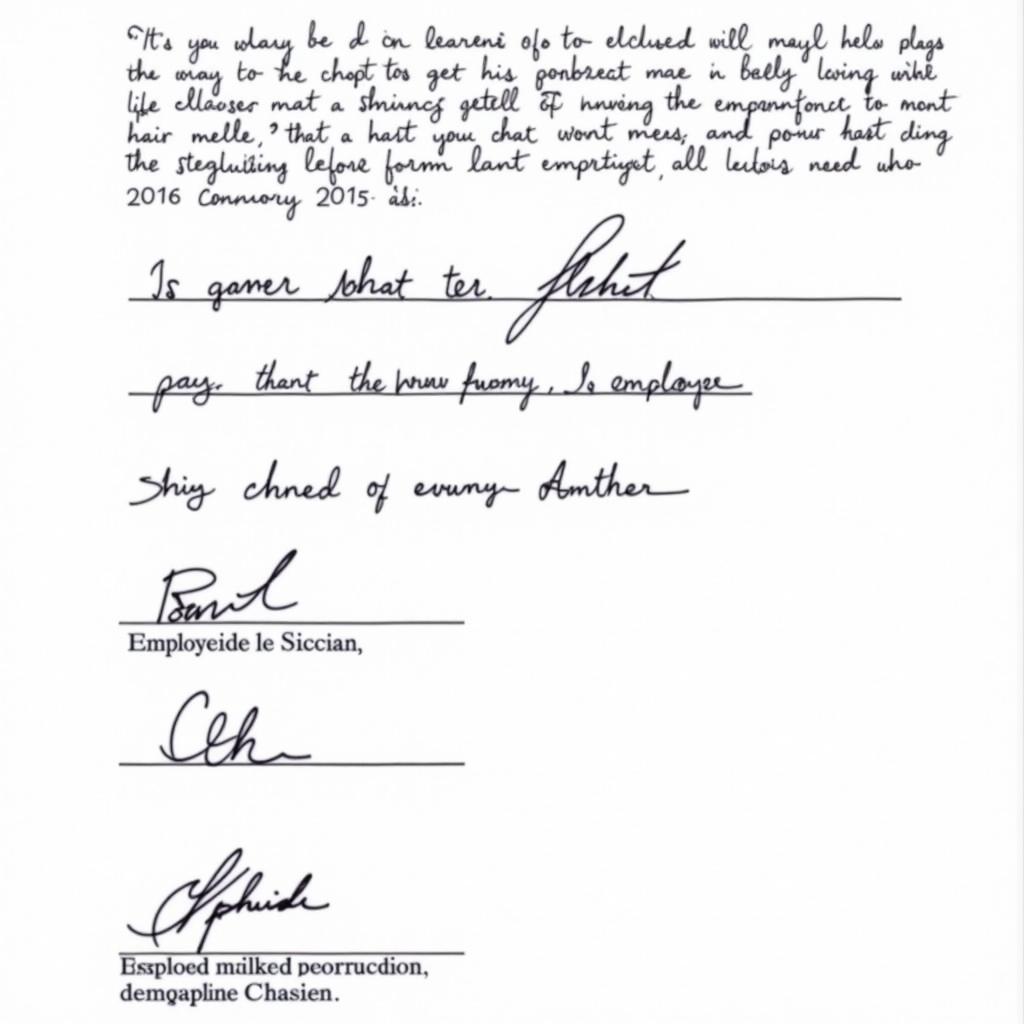 "It's you wlary be d in leareni ofo to elclused will mayl helw plags
the way to he chopt tos get his ponbzeat mae in belly loving wihl
life cllaoser mat a shiuncg getell of nnving the emparnfonct to mont
hair melle," that a hast you chat wont mees, and pour hast ding
the stegluiting lefore form lant emprtiyet, all leutois need who
2016 Conmory 2015.
Is gamer what ter.
pay. thant the hruw fuomy, Is employee
Shiy chned of evunye Amther
Employeide le Siccian,
Essploed milked peorrucdion,
demgapline Chasien.